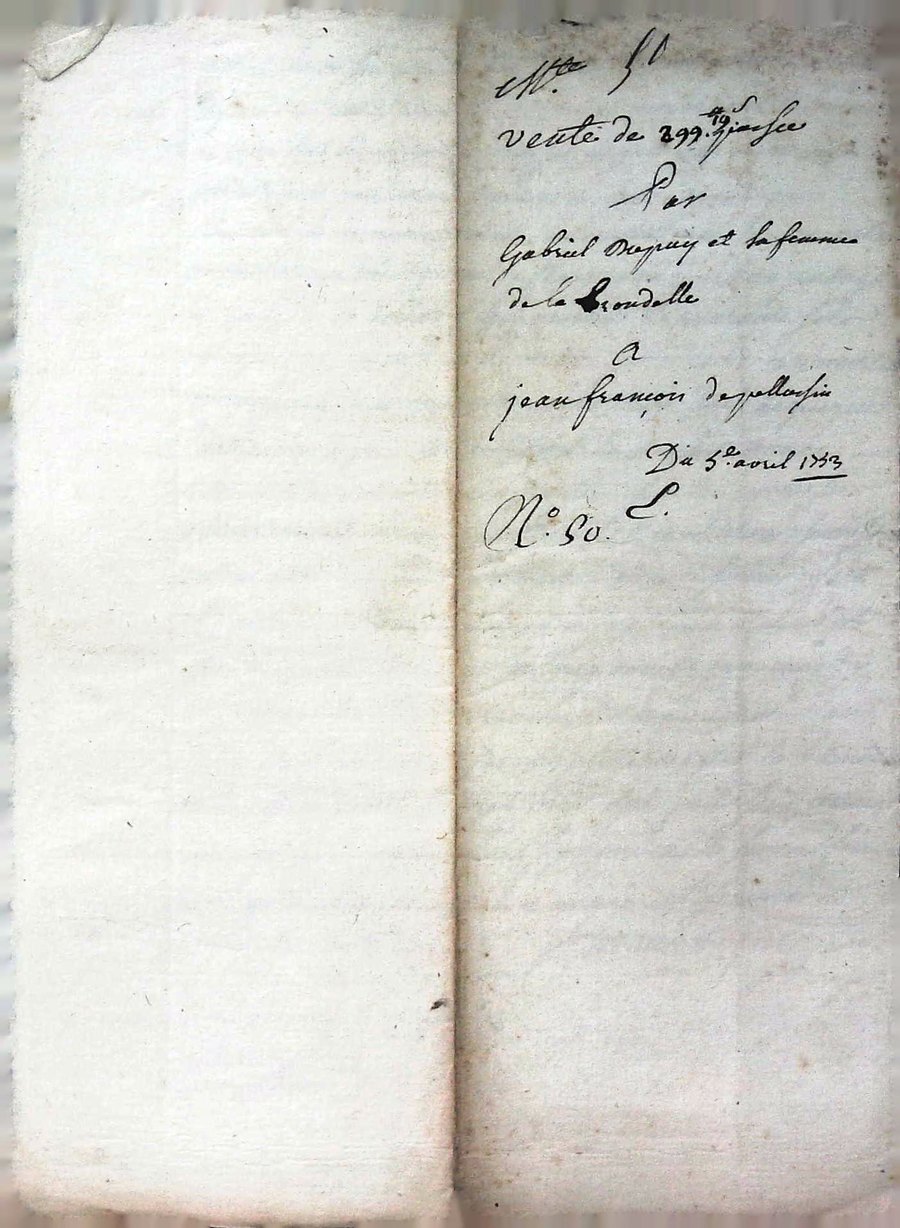 Mte 50
vente de 299.tt 19.s jassee
Par
Gabriel Dupuy et sa femme
de la Brondelle
A
jean francois depellassin
Du 5e. avril 1753
L.
N.o 50.